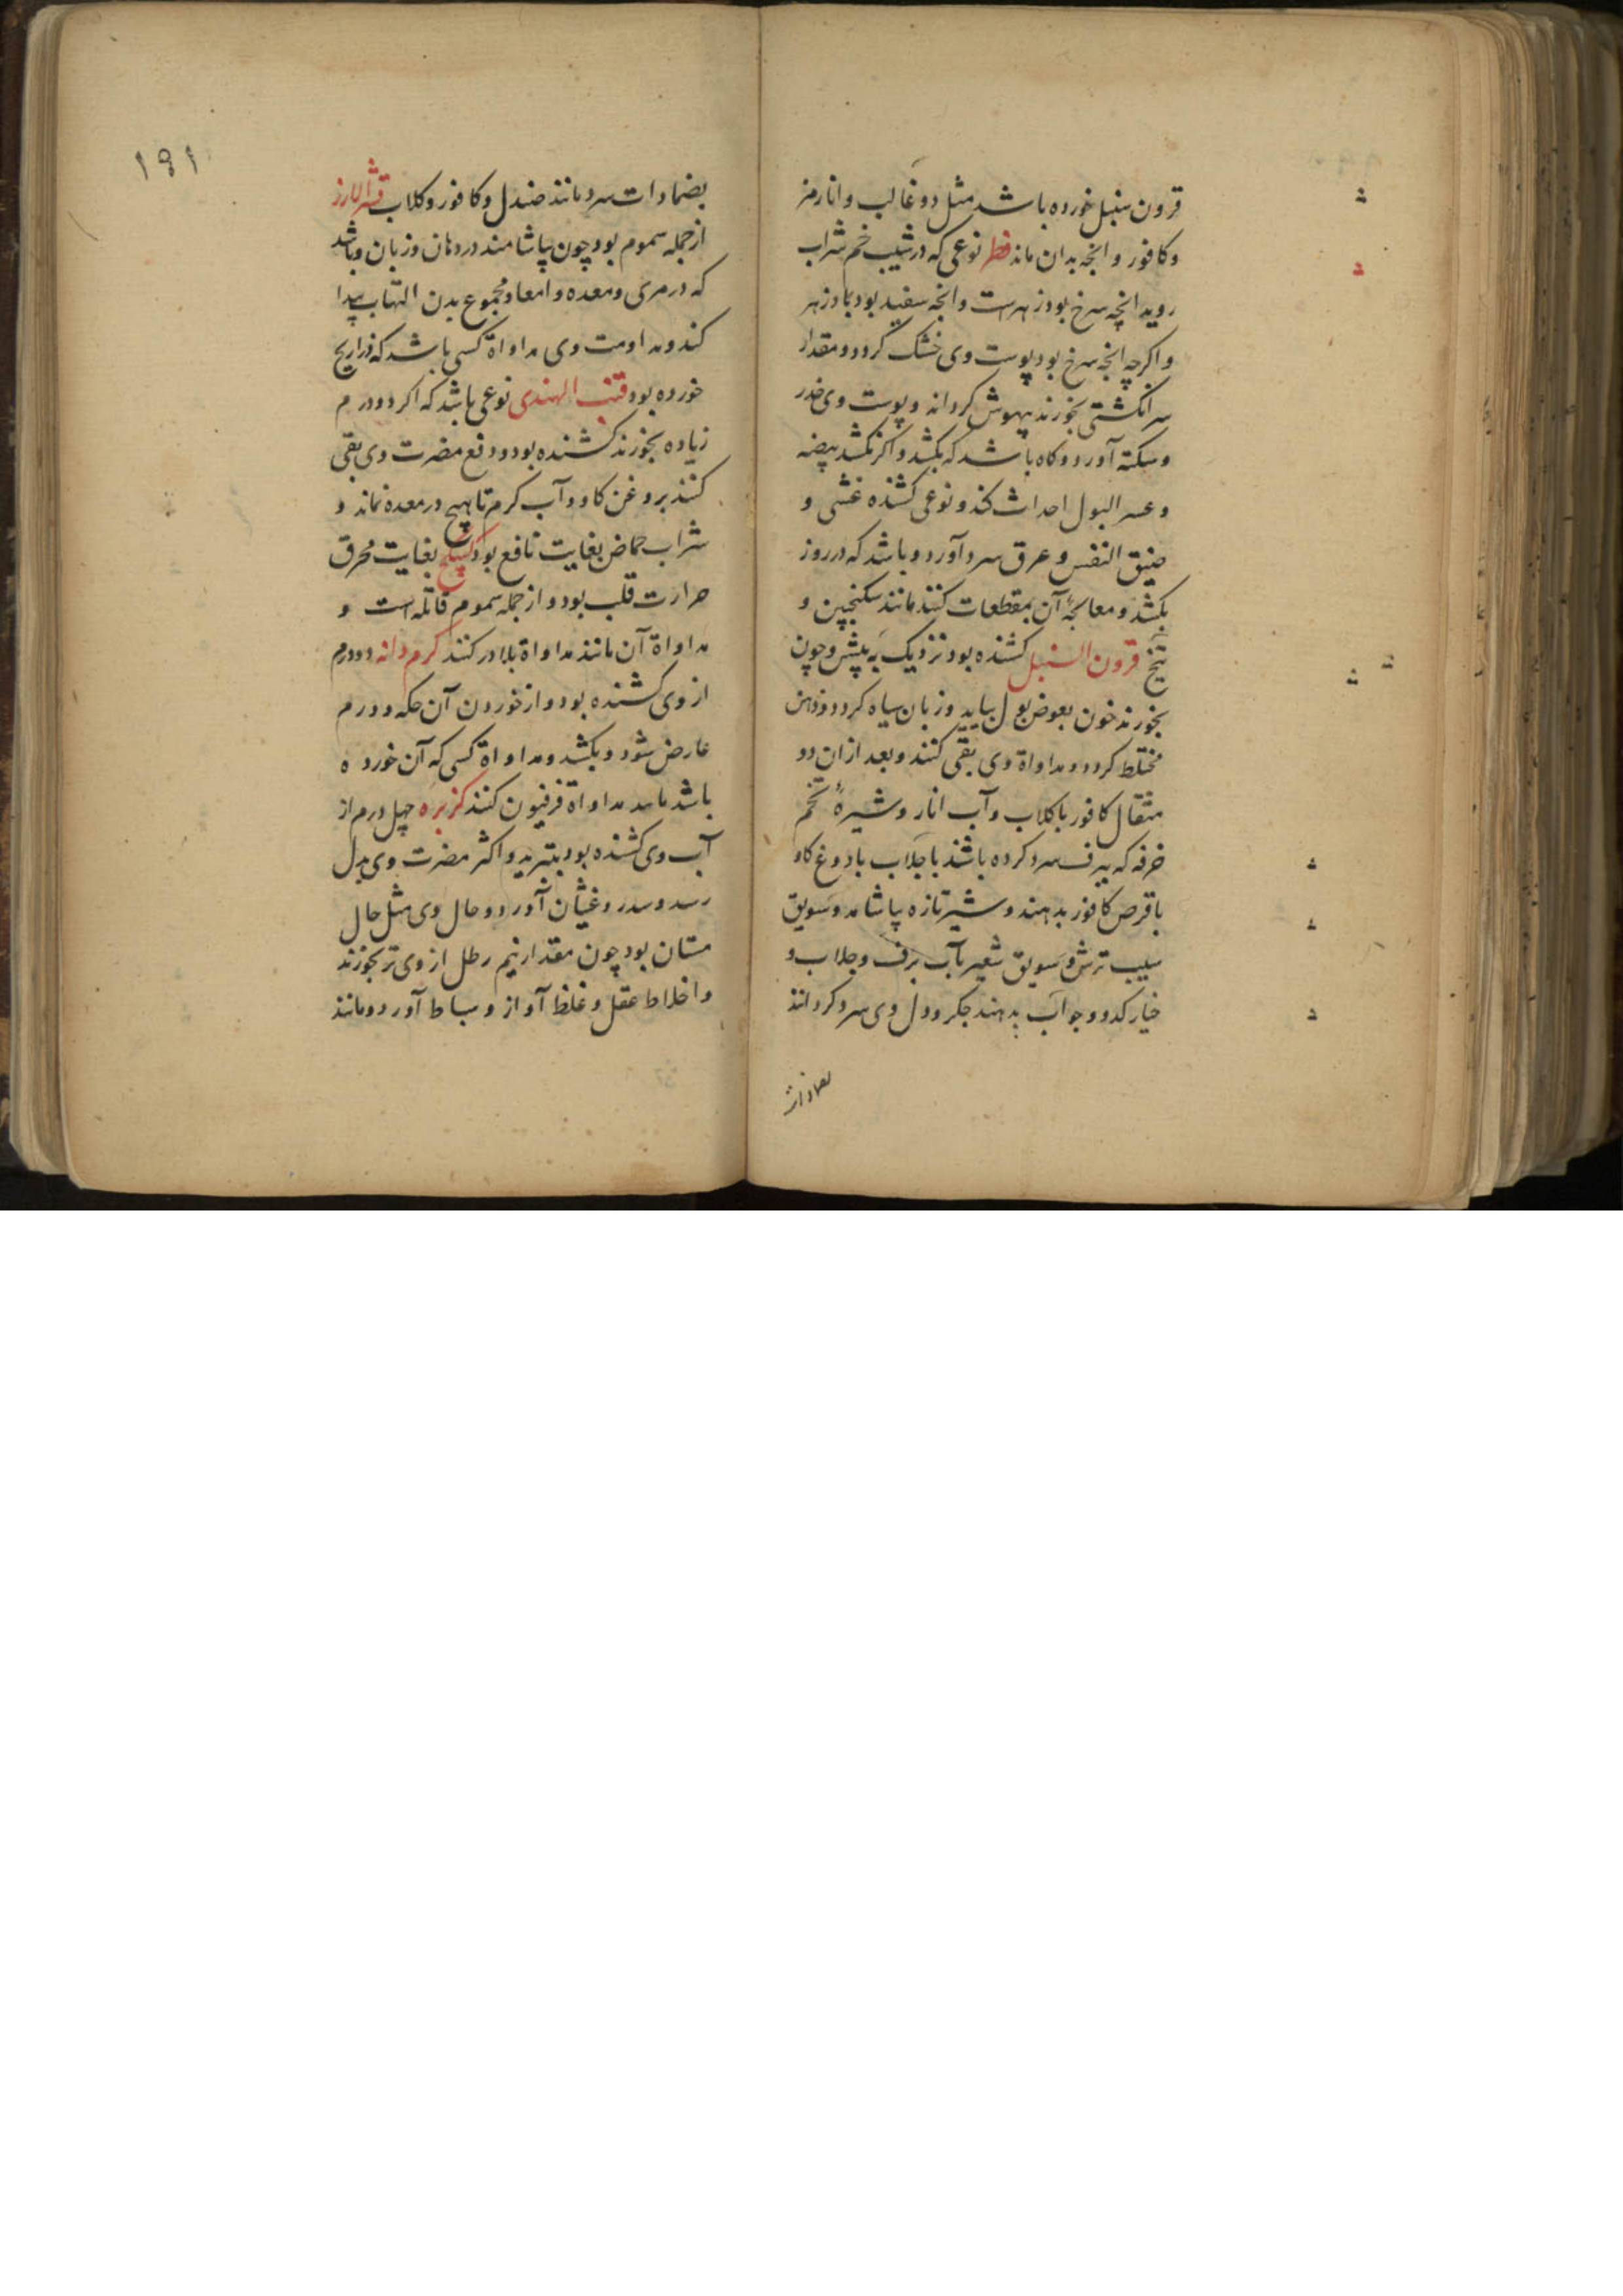 قرون سنبل خورده باشد مثل دوغا لب و انار مز
و کافور و انچه بدان ماند فطر نوعی که در شیب خم شراب
روید انچه سرخ بود زهرست و انچه سفید بود پادزهر
و اکرچه انچه سرخ بود پوست وی خشک کردد و مقدار
سر انکشتی بخورند بیهوش کرداند و پوست وی خدر
و سکته آورد و کاه باشد که بکشد و اکر نکشد بیضه
و عسر البول احداث کند و نوعی کشنده غشی و
ضیق النفس و عرق سرد آورد و باشد که در روز
بکشد و معالجهٔ آن بمقطعات کنند مانند سکنجبین و
قرون السنبل کشنده بود نزدیک به بیش و چون
بخورند خون بعوض بول بیاید و زبان سیاه کردد و ذهن
مختلط کردد و مداواة وی بقی کنند و بعد ازان دو
مثقال کافور با کلاب و آب انار و شیرهٔ تخم
خرفه که ببرف سرد کرده باشند با جلاب با دوغ کاو
با قرص کافور بدهند و شیر تازه بیاشامد و سویق
سیب ترش و سویق شعیر بآب برف و جلاب و
خیار کدو و جو آب بدهند جکر و دل وی سرد کردانند
۱۹۱
بضمادات سرد مانند صندل و کافور و کلاب قشر الارز
از جمله سموم بود چون بیاشامند در دهان و زبان و باشد
که در مری و معده و امعا و مجموع بدن التهاب پیدا
کند و مداومت وی مداواة کسی باشد که ذراریح
خورده بود قنب الهندی نوعی باشد که اکر دو درم
زیاده بخورند کشنده بود و دفع مضرت وی بقی
کنند بروغن کاو و آب کرم تا هیچ در معده نماند و
شراب حماض بغایت نافع بود بغایت محرق
حرارت قلب بود و از جمله سموم قاتله است و
مداواة آن مانند مداواة بلادر کنند کرم دانه دو درم
از وی کشنده بود و از خوردن آن حکه و ورم
عارض شود و بکشد و مداواة کسی که آن خورده
باشد مداواة فرفیون کنند کزبره چهل درم از
آب وی کشنده بود بتبرید و اکثر مضرت وی بدل
رسد و سدر و غثیان آورد و حال وی مثل حال
مستان بود چون مقدار نیم رطل از وی تر بخورند
و اخلاط عقل و غلظ آواز و سباط آورد و مانند